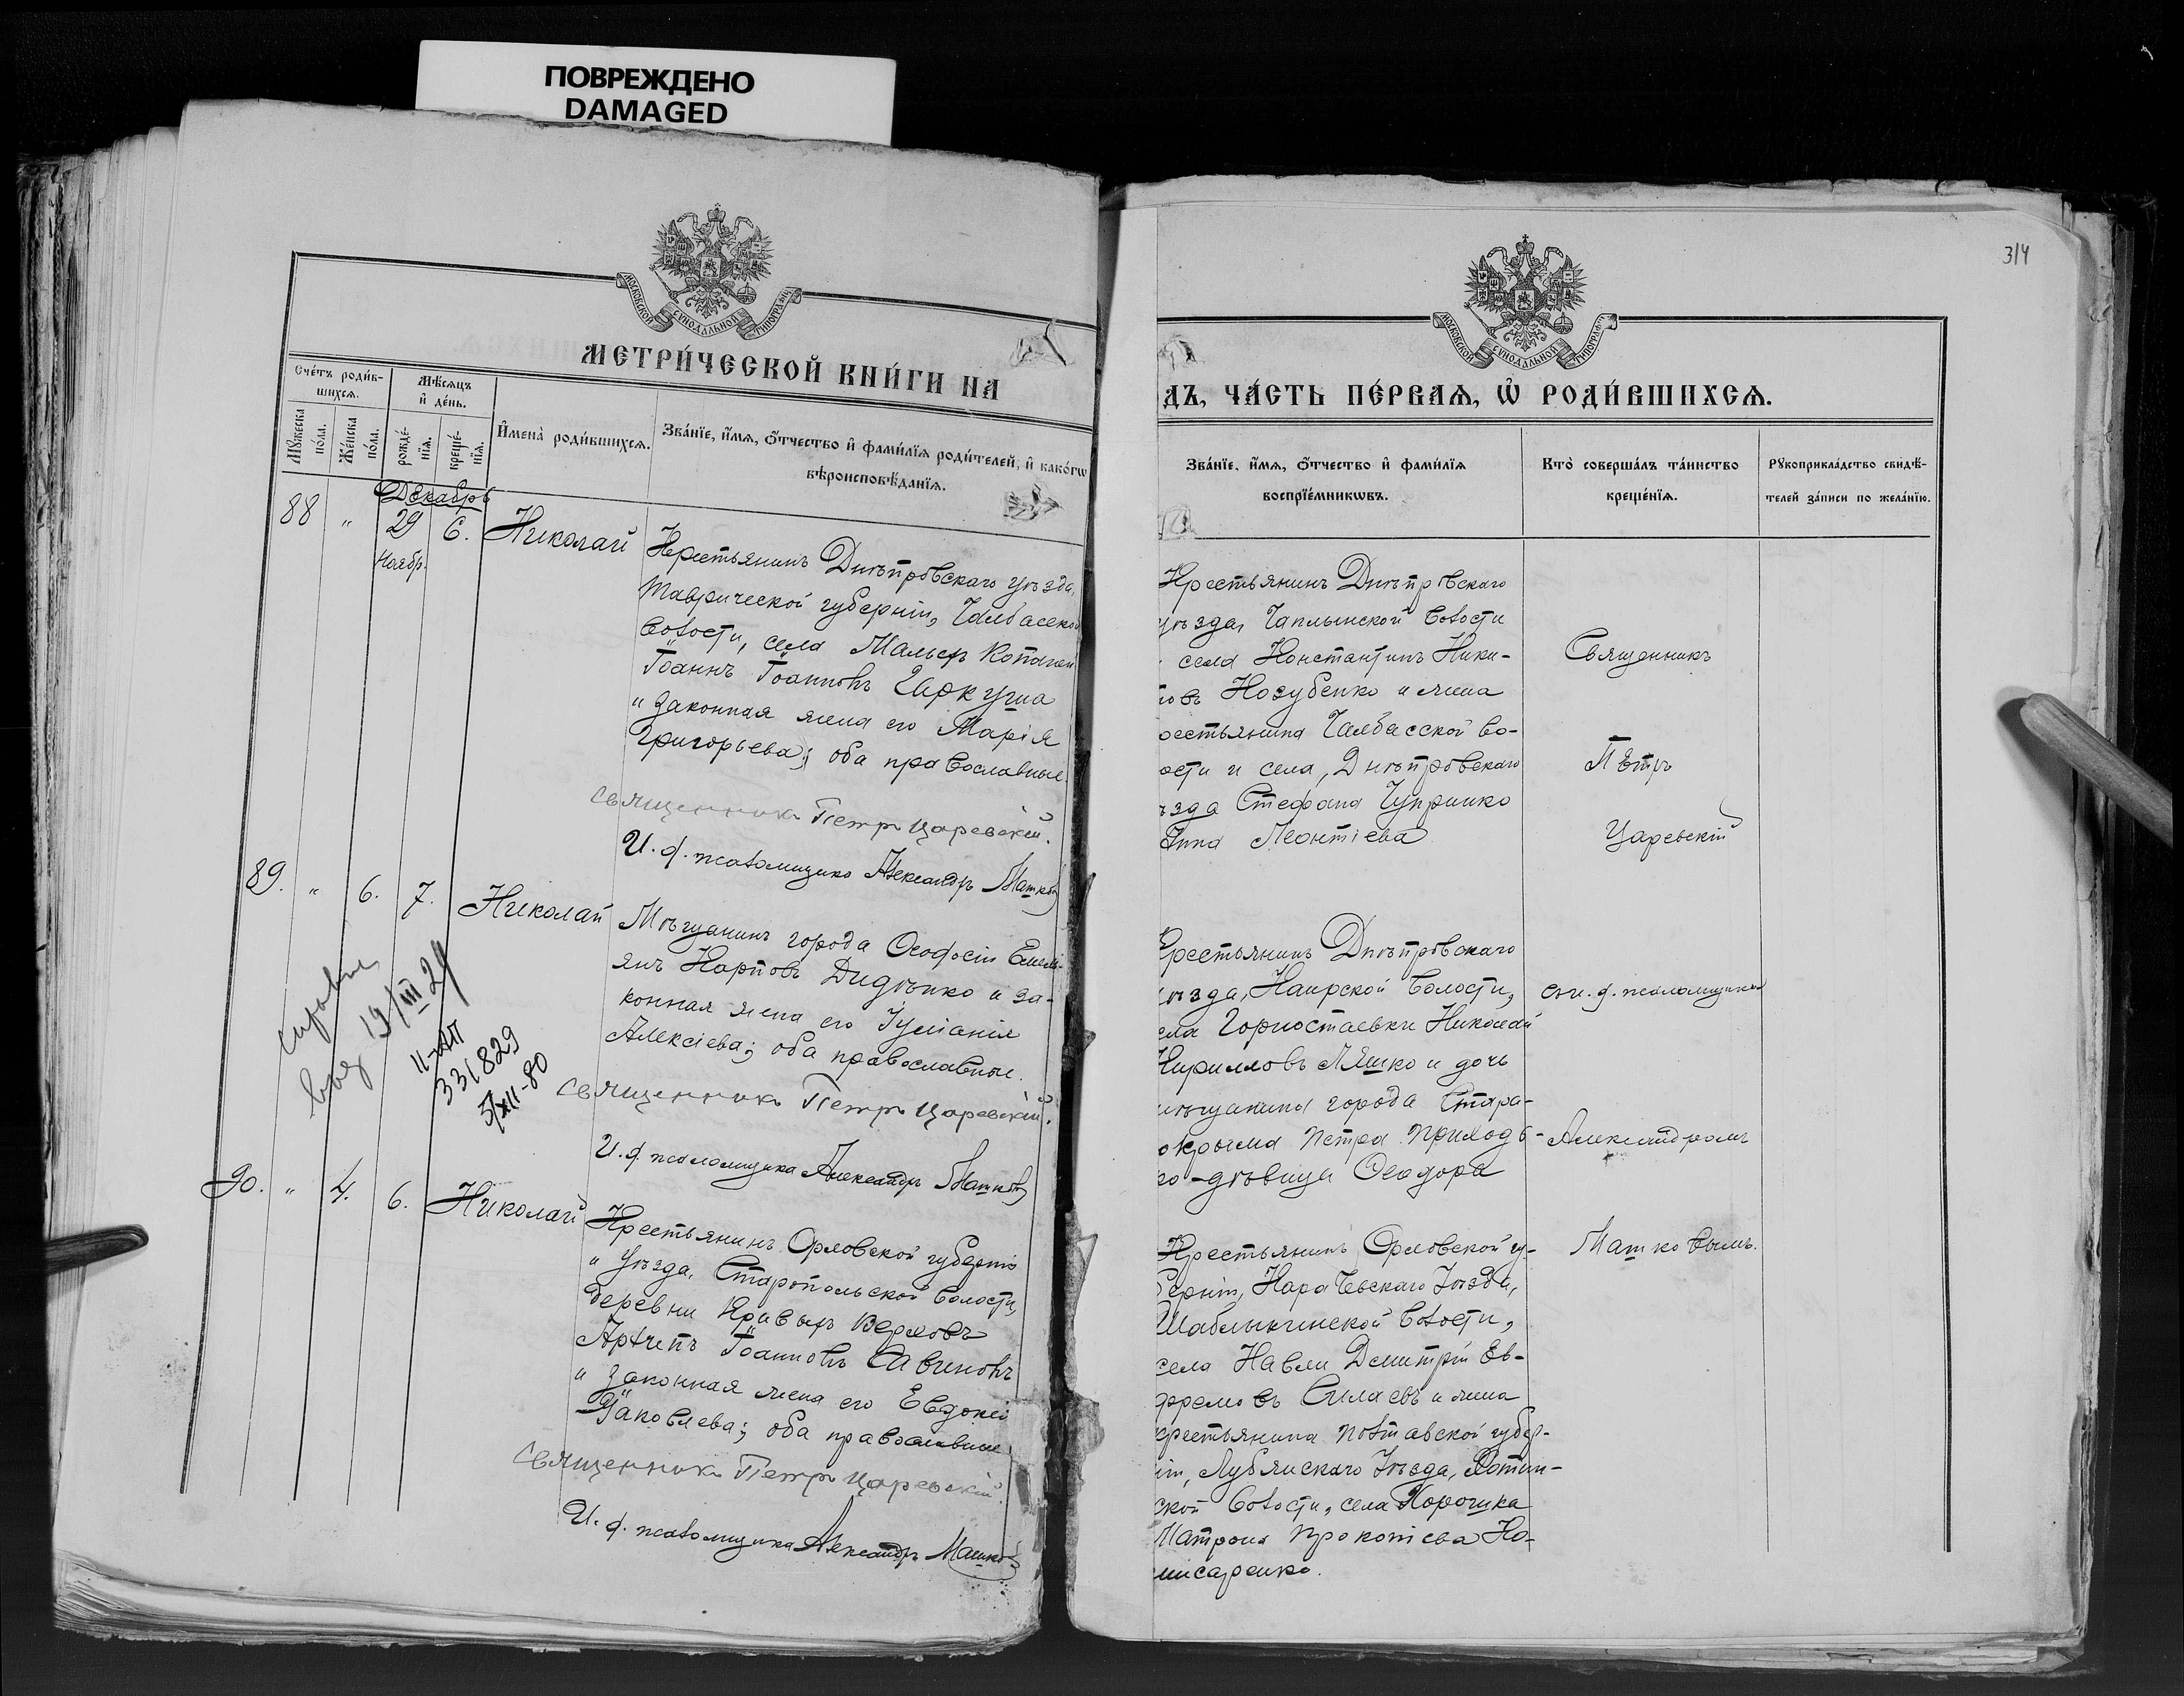 ПОВРЕЖДЕНО
DAMAGED
МОСКОВСКОЙ СѴНОДАЛЬНОЙ ТИПОГРАФІИ
МЕТРИ́ЧЕСКОЙ КНИ́ГИ НА
Сче́тъ роди́в-
шихсѧ.
Мѣ́сѧцъ
и҆ де́нь.
Мꙋ́жеска
по́ла.
Же́нска
по́ла.
рожде́-
нїѧ.
креще́-
нїѧ.
И҆мена̀ роди́вшихсѧ.
Зва́нїе, и҆́мѧ, ѻ҆́тчество и҆ фами́лїѧ роди́телей, и҆ како́гѡ
вѣроисповѣ́данїѧ.
Декабрь
88 " 29 6. Николай
Ноябр.
Крестьянинъ Днѣпровскаго уѣзда,
Таврической губерніи, Чалбасской
волости, села Малыхъ Копаней
Іоаннъ Іоанновъ Гаркуша
и законная жена его Марія
Григорьева; оба православные.
Священникъ Петръ Царевскій.
И. д. псаломщика Александръ Машковъ
89. " 6. 7. Николай
Мѣщанинъ города Ѳеодосіи Емель-
янъ Карповъ Дидѣнко и за-
конная жена его Іуліанія
Алексіева; оба православные.
Священникъ Петръ Царевскій.
И. д. псаломщика Александръ Машковъ
19/III 24
II-АП
331829
5/XII-80
90. " 4. 6. Николай
Крестьянинъ Орловской губерніи
и уѣзда, Старопольской волости,
деревни Кривыхъ Верховъ
Архипъ Іоанновъ Савиновъ
и законная жена его Евдокі
Яковлева; оба православные
Священникъ Петръ Царевскій.
И. д. псаломщика Александръ Машковъ
314
МОСКОВСКОЙ СѴНОДАЛЬНОЙ ТИПОГРАФІИ
ДЪ, ЧА́СТЬ ПЕ́РВАѦ, Ѽ РОДИ́ВШИХСѦ.
Зва́нїе, и҆́мѧ, ѻ҆́тчество и҆ фами́лїѧ
воспрїе́мникѡвъ.
Кто̀ соверша́лъ та́инство
креще́нїѧ.
Рꙋкоприкла́дство свидѣ́-
телей за́писи по жела́нїю.
Крестьянинъ Днѣпровскаго
уѣзда, Чаплынской волости
села Константинъ Ники-
товъ Козубенко и жена
рестьянина Чалбасской во-
ости и села, Днѣпровскаго
ѣзда Стефана Чупринко
Анна Леонтіева
Священникъ
Пѣтръ
Царевскій
Крестьянинъ Днѣпровскаго
уѣзда, Каирской волости,
ела Горностаевки Николай
Кирилловъ Ляшко и дочь
мѣщанина города Стара-
окрыма Петра Приходь-
ко-дѣвица Ѳеодора
съ и. д. псаломщика
Александромъ
Машковымъ.
Крестьянинъ Орловской гу-
берніи, Карачевскаго Уѣзда,
Шаблыкинской волости,
села Навли Димитрій Ев-
фремовъ Силаевъ и жена
крестьянина Полтавской губер-
іи, Лубянскаго Уѣзда,
ской волости, села
Матрона Прокопіева Ко-
мисаренко.